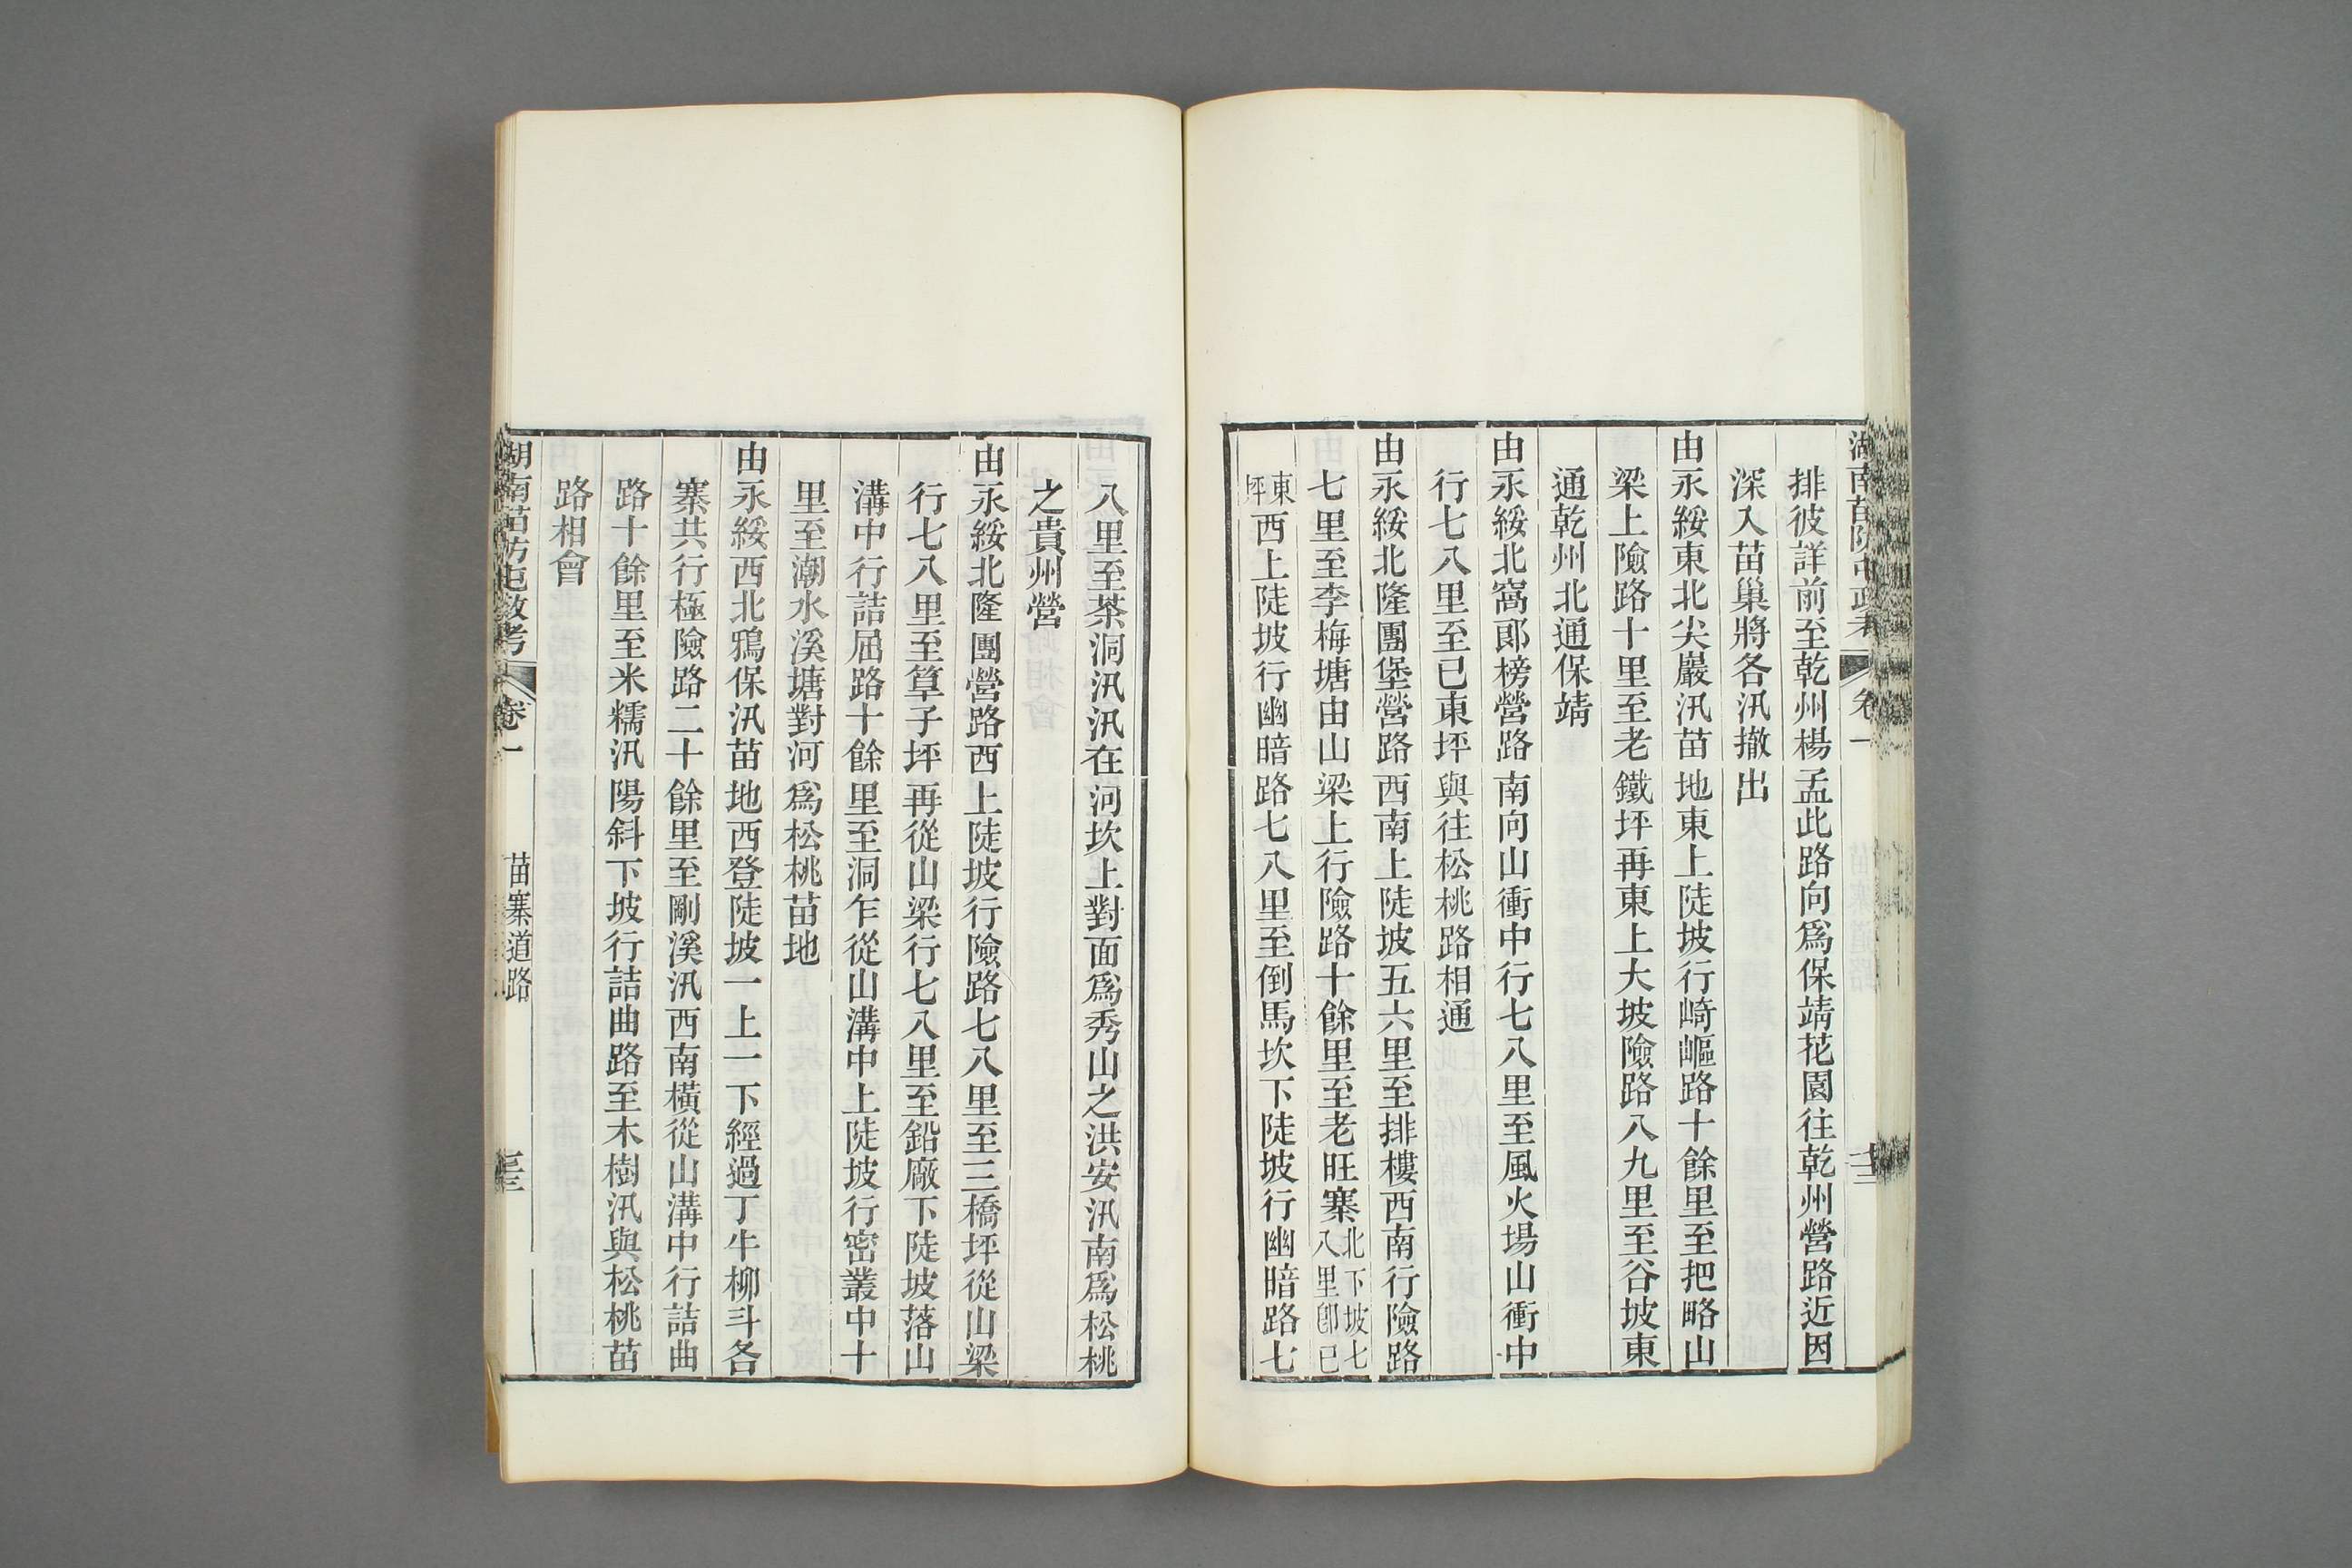 排彼詳前至乾州楊孟此路向爲保靖花園往乾州營路近因
深入苗巢將各汛撤出
由永綏東北尖巖汛苗地東上陡坡行崎嶇路十餘里至把略山
梁上險路十里至老鐵坪再東上大坡險路八九里至谷坡東
通乾州北通保靖
由永綏北窩郎榜營路南向山衝中行七八里至風火場山衝中
行七八里至已東坪與往松桃路相通
由永綏北隆團堡營路西南上陡坡五六里至排樓西南行險路
七里至李梅塘由山梁上行險路十餘里至老旺寨北下坡七
八里卽已
東
坪
西上陡坡行幽暗路七八里至倒馬坎下陡坡行幽暗路七
八里至茶洞汛汛在河坎上對面爲秀山之洪安汛南爲松桃
之貴州營
由永綏北隆團營路西上陡坡行險路七八里至三橋坪從山梁
行七八里至簞子坪再從山梁行七八里至鉛廠下陡坡落山
溝中行詰屈路十餘里至洞乍從山溝中上陡坡行密叢中十
里至潮水溪塘對河爲松桃苗地
由永綏西北鴉保汛苗地西登陡坡一上一下經過丁牛柳斗各
寨共行極險路二十餘里至剛溪汛西南橫從山溝中行詰曲
路十餘里至米糯汛陽斜下坡行詰曲路至木樹汛與松桃苗
路相會
湖南苗防屯政考 卷一 苗寨道路